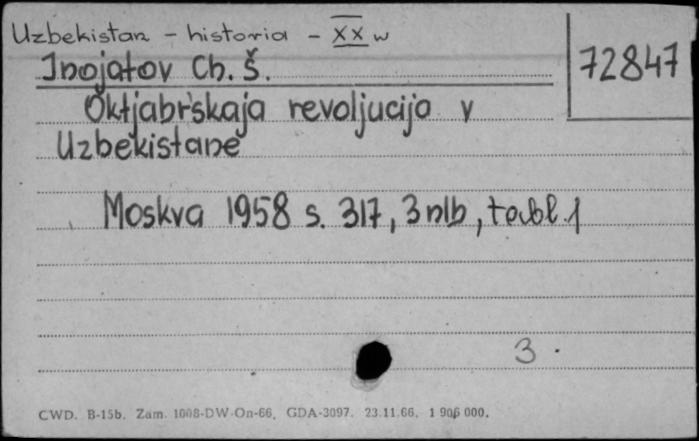 Uzbekistan - historia - XX w
Inojatov Ch. Š.
72847
Oktjabr'skaja revoljucija v
Uzbekistane
Moskva 1958 s. 317, 3 nlb, tabl. 1
3.
CWD. B-15b. Zam. 1008-DW-On-66. GDA-3097. 23.11.66. 1 906 000.